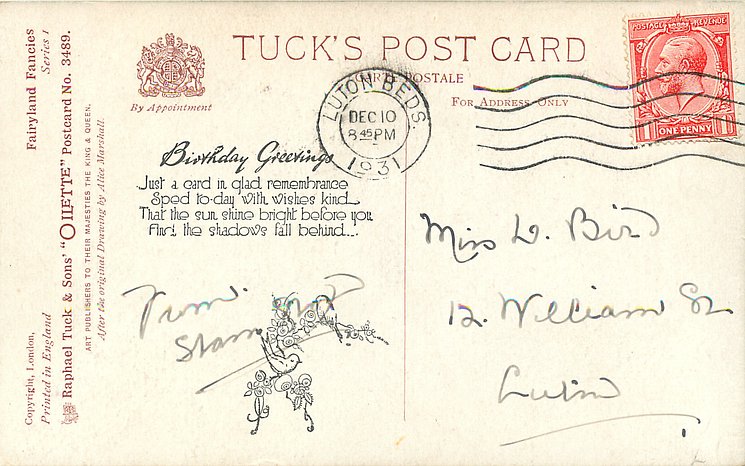 TUCK'S POST CARD
CARTE POSTALE
By Appointment
FOR ADDRESS ONLY
LUTON BEDS.
DEC 10
8.45 PM
1931
POSTAGE REVENUE
ONE PENNY
Fairyland Fancies
Series 1
Raphael Tuck & Sons' "OILETTE" Postcard No. 3489.
ART PUBLISHERS TO THEIR MAJESTIES THE KING & QUEEN.
After the original Drawing by Alice Marshall.
Copyright, London,
Printed in England
Birthday Greetings
Just a card in glad remembrance
Sped to-day with wishes kind
That the sun shine bright before you
And the shadows fall behind...
From
Miss D. Bird
12. William St.
Luton